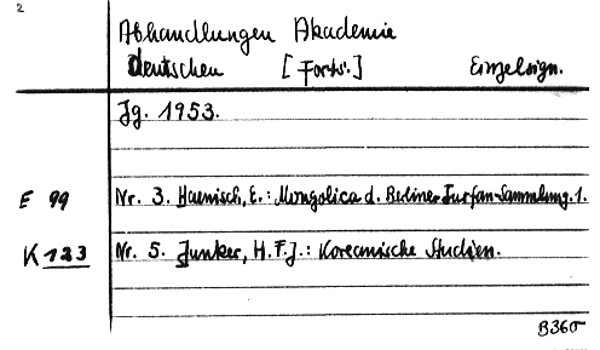 2
Abhandlungen Akademie
deutschen [Forts.] Einzelsign.
Jg. 1953.
E 99 Nr. 3. Haenisch, E.: Mongolica d. Berliner Turfan-Sammlung. 1.
K 123 Nr. 5. Junker, H.F.J.: Koreanische Studien.
B360